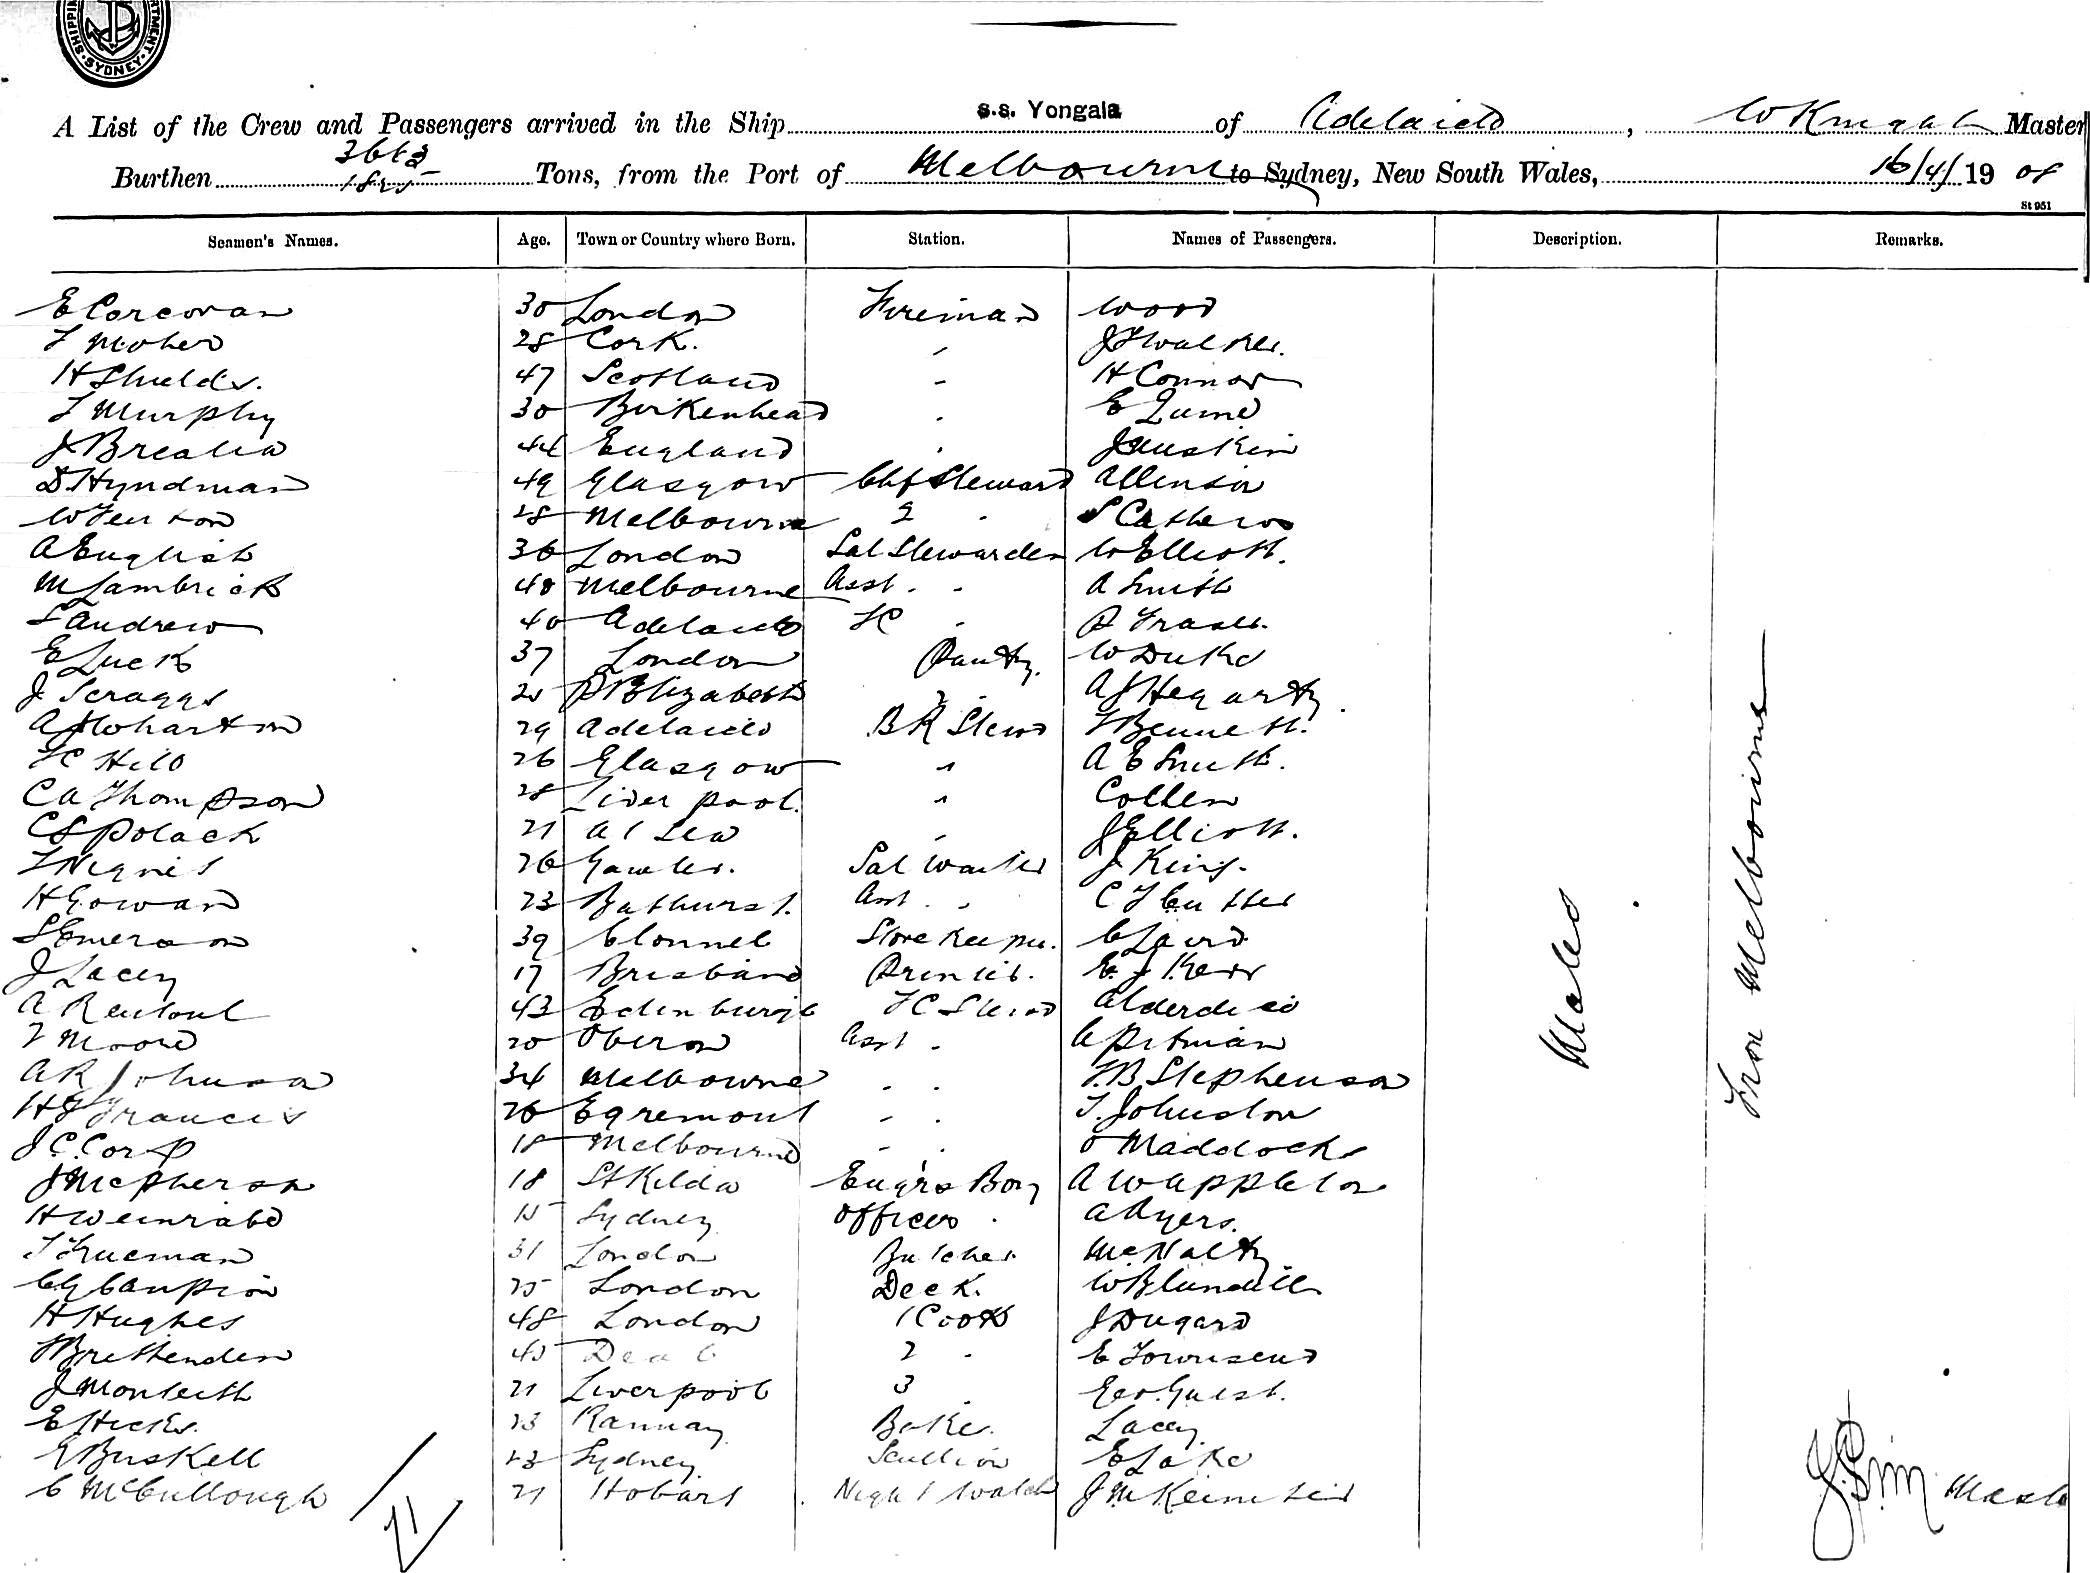 SHIPPING DEPARTMENT SYDNEY
A List of the Crew and Passengers arrived in the Ship s.s. Yongala of Adelaide, W Knight Master
Burthen 3663 1825 Tons, from the Port of Melbourne to Sydney, New South Wales, 16/4/1908
St 951
Seamen's Names. Age. Town or Country where Born. Station. Names of Passengers. Description. Remarks.
E Corcoran 30 London Fireman Wood
T Moher 28 Cork. " J T Walker.
H Shields. 47 Scotland " H Connor
T Murphy 30 Birkenhead " E Lume
J Brealia 44 England " J Muskin
D Hyndman 49 Glasgow Chf Steward Allenson
W Fenton 28 Melbourne 2 " S Cathews
A English 36 London Sal Stewardess W Elliott.
M Lambrick 48 Melbourne Asst. " A Smith
S Andrew 40 Adelaide FC " R Fraser.
E Luck 37 London Pantry. W Duke
J Scraggs 20 P Elizabeth 2 " A J Hegarty.
A J Wharton 29 Adelaide B R Stewd F Bennett.
FC Hill 26 Glasgow " A E Smith.
C A Thompson 28 Liverpool. " Collen
C S Polack 21 At Sea " J Elliott.
26 Gawler. Sal Waiter J King.
H Gowan 23 Bathurst. Asst. " C F Cutter
S Emerson 39 Clonmel Storekeeper. C Laird
J Lacey 17 Brisbane Printer. E. J Kerr
A Rentoul 43 Edinburgh FC Stewd Alderdice
F Moore 20 Oberon Asst " C Pitman
A R Johnson 34 Melbourne " " F. B Stephenson
H J Francis 26 Egremont " " T. Johnston
J. C. Corp 18 Melbourne " " O Maddocks
J McPherson 18 St Kilda Engrs Boy A W Appleton
H Weinrabe 15 Sydney Officers " A Ayers.
T Trueman 31 London Butcher McNalty
C G Campion 25 London Deck. W Blundell
H Hughes 48 London 1 Cook J Dugard
F Brettenden 40 Deal 2 " E Townsend
J Monteith 21 Liverpool 3 " Geo. Guest.
E Hicks. 23 Baker. Lacey
G Buskell 23 Sydney Scullion E Lake
C McCullough 21 Hobart Night Watch
Males
From Melbourne
71
J. Sim Master